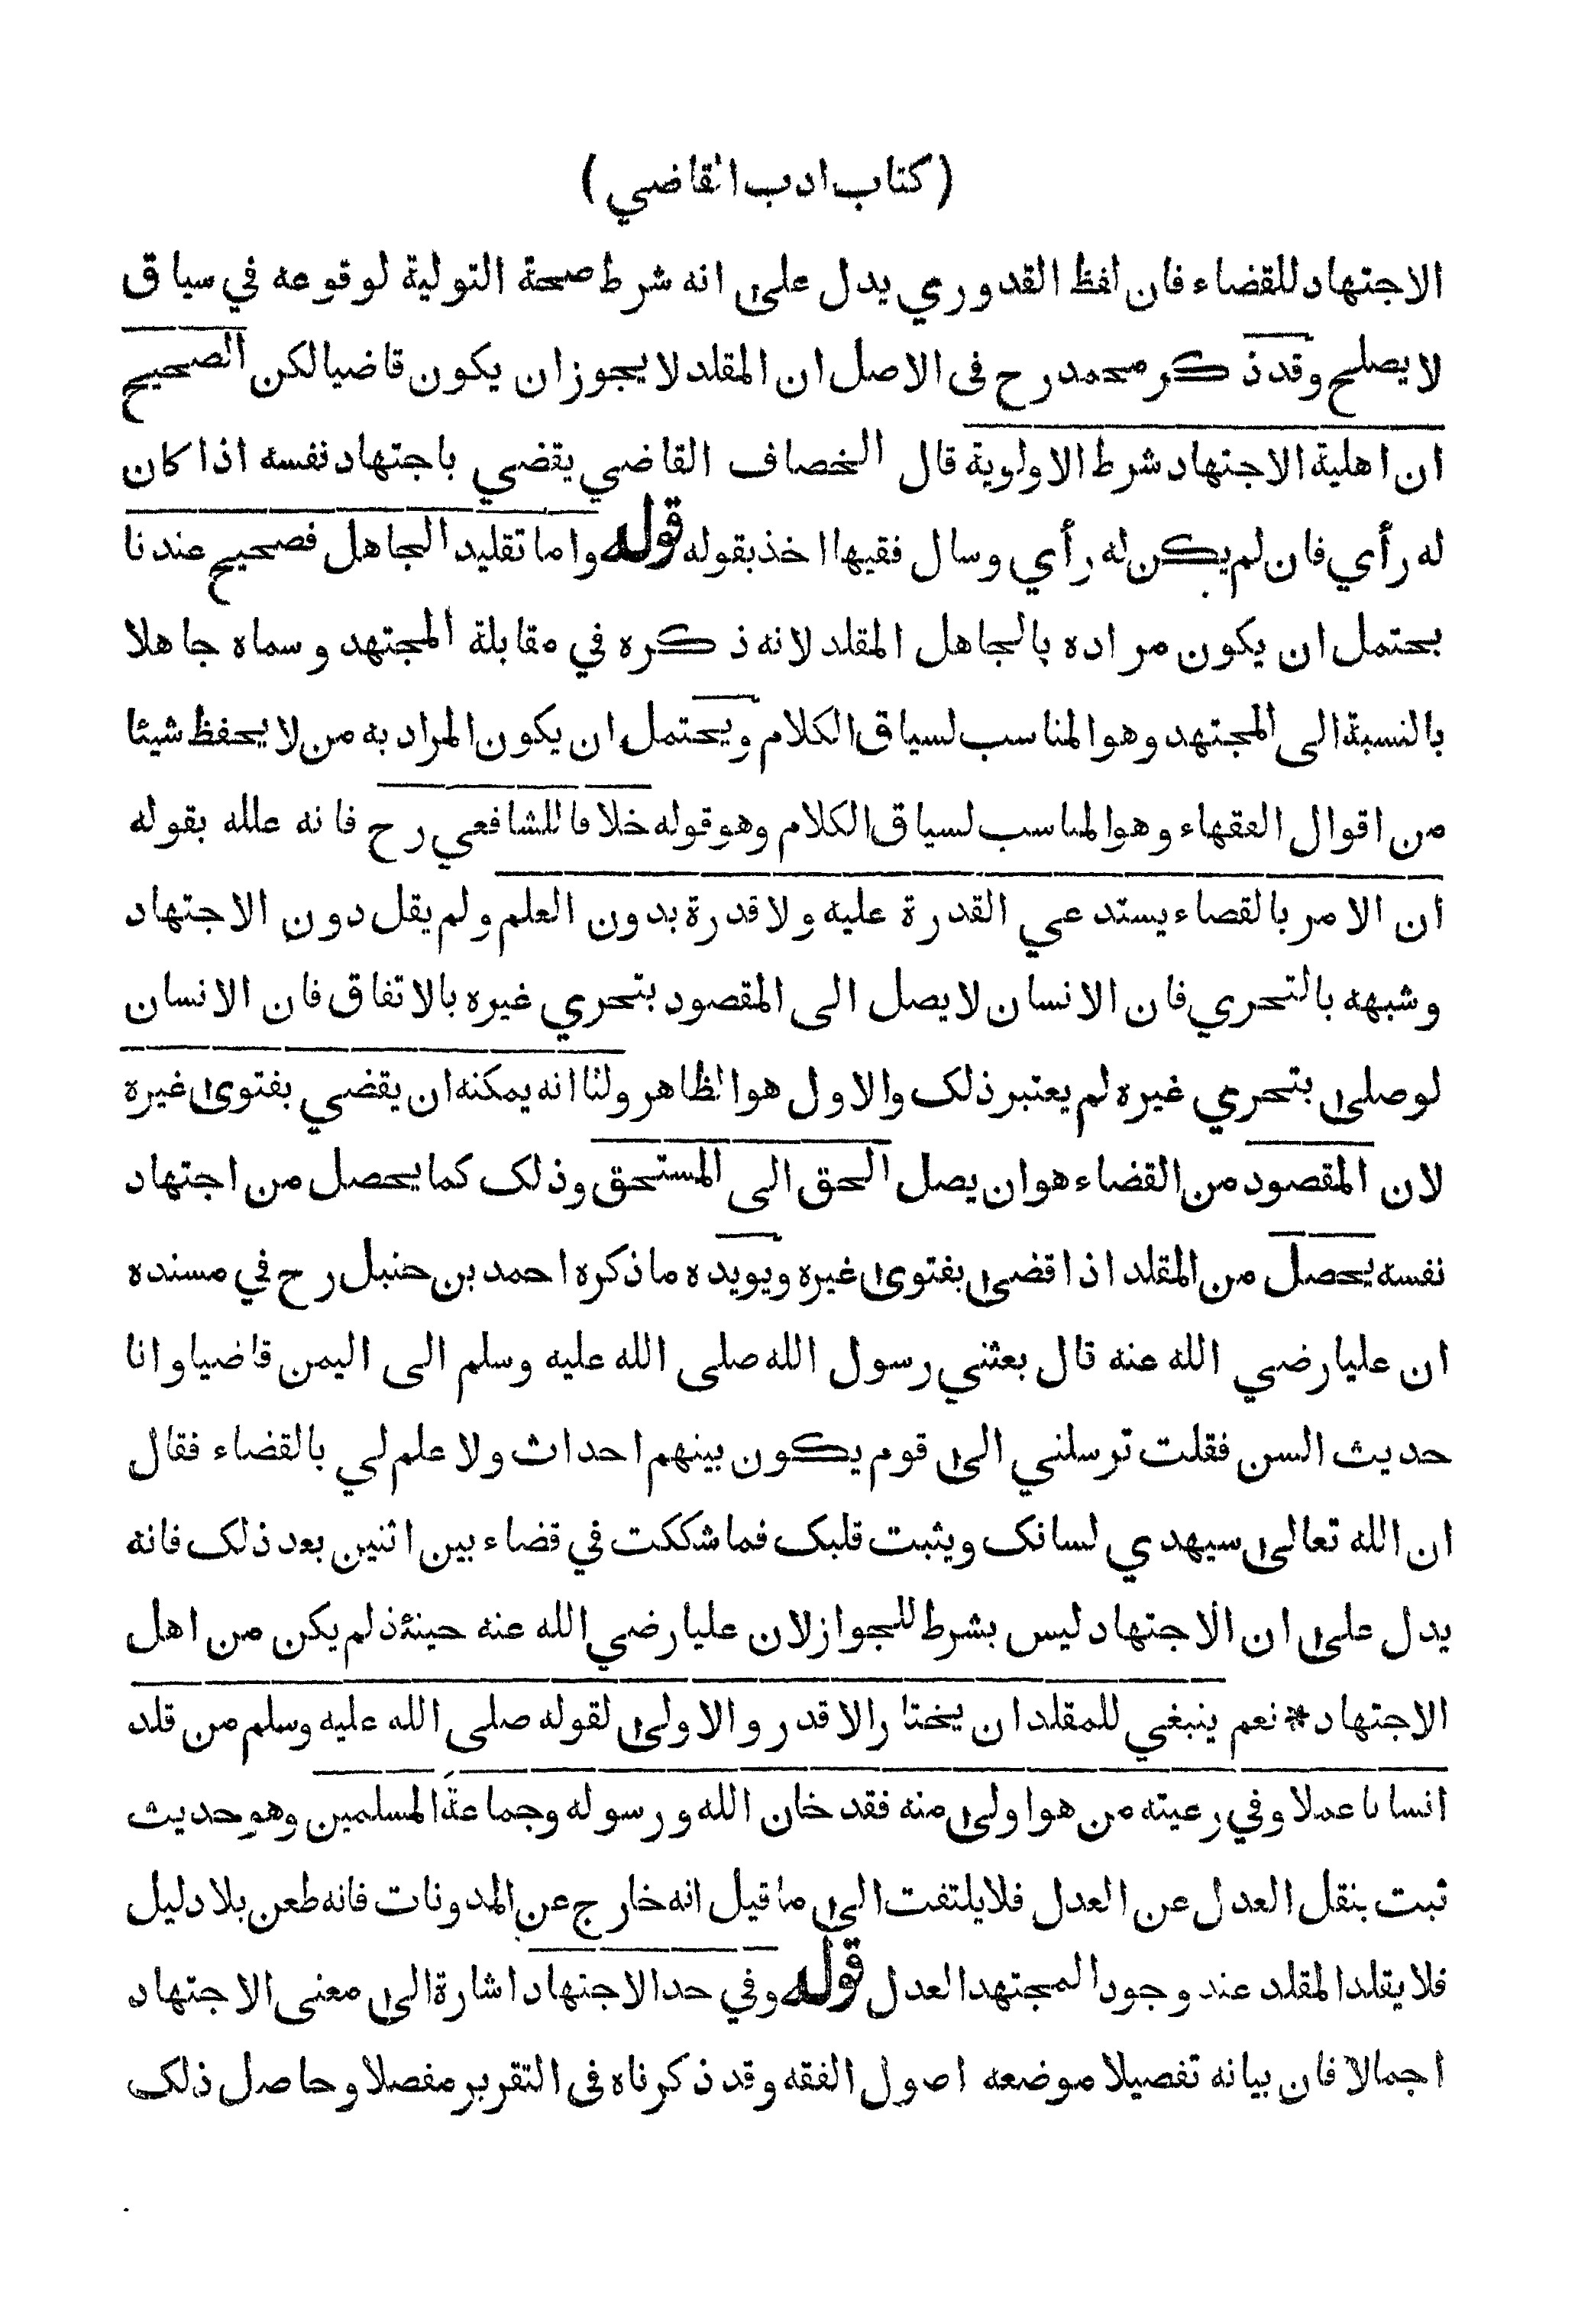 ( كتاب ادب القاضي )
الاجتهاد للقضاء فان لفظ القدوري يدل على انه شرط صحة التولية لوقوعه في سياق
لا يصلح وقد ذكر محمد رح في الاصل ان المقلد لا يجوز ان يكون قاضيا لكن الصحيح
ان اهلية الاجتهاد شرط الاولوية قال الخصاف القاضي يقضي باجتهاد نفسه اذا كان
له رأي فان لم يكن له رأي وسال فقيها اخذ بقوله قوله واما تقليد الجاهل فصحيح عندنا
يحتمل ان يكون مراده بالجاهل المقلد لانه ذكره في مقابلة المجتهد وسماه جاهلا
بالنسبة الى المجتهد وهو المناسب لسياق الكلام ويحتمل ان يكون المراد به من لا يحفظ شيئا
من اقوال الفقهاء وهو المناسب لسياق الكلام وهو قوله خلافا للشافعي رح فانه علله بقوله
ان الامر بالقضاء يستدعي القدرة عليه ولا قدرة بدون العلم ولم يقل دون الاجتهاد
وشبهه بالتحري فان الانسان لا يصل الى المقصود بتحري غيره بالاتفاق فان الانسان
لو صلى بتحري غيره لم يعتبر ذلك والاول هو الظاهر ولنا انه يمكنه ان يقضي بفتوى غيره
لان المقصود من القضاء هو ان يصل الحق الى المستحق وذلك كما يحصل من اجتهاد
نفسه يحصل من المقلد اذا قضى بفتوى غيره ويويده ما ذكره احمد بن حنبل رح في مسنده
ان عليا رضي الله عنه قال بعثني رسول الله صلى الله عليه وسلم الى اليمن قاضيا وانا
حديث السن فقلت ترسلني الى قوم يكون بينهم احداث ولا علم لي بالقضاء فقال
ان الله تعالى سيهدي لسانك ويثبت قلبك فما شككت في قضاء بين اثنين بعد ذلك فانه
يدل على ان الاجتهاد ليس بشرط للجواز لان عليا رضي الله عنه حينئذ لم يكن من اهل
الاجتهاد * نعم ينبغي للمقلد ان يختار الاقدر والاولى لقوله صلى الله عليه وسلم من قلد
انسانا عملا وفي رعيته من هو اولى منه فقد خان الله ورسوله وجماعة المسلمين وهو حديث
ثبت بنقل العدل عن العدل فلا يلتفت الى ما قيل انه خارج عن المدونات فانه طعن بلا دليل
فلا يقلد المقلد عند وجود المجتهد العدل قوله وفي حد الاجتهاد اشارة الى معنى الاجتهاد
اجمالا فان بيانه تفصيلا موضعه اصول الفقه وقد ذكرناه في التقرير مفصلا وحاصل ذلك